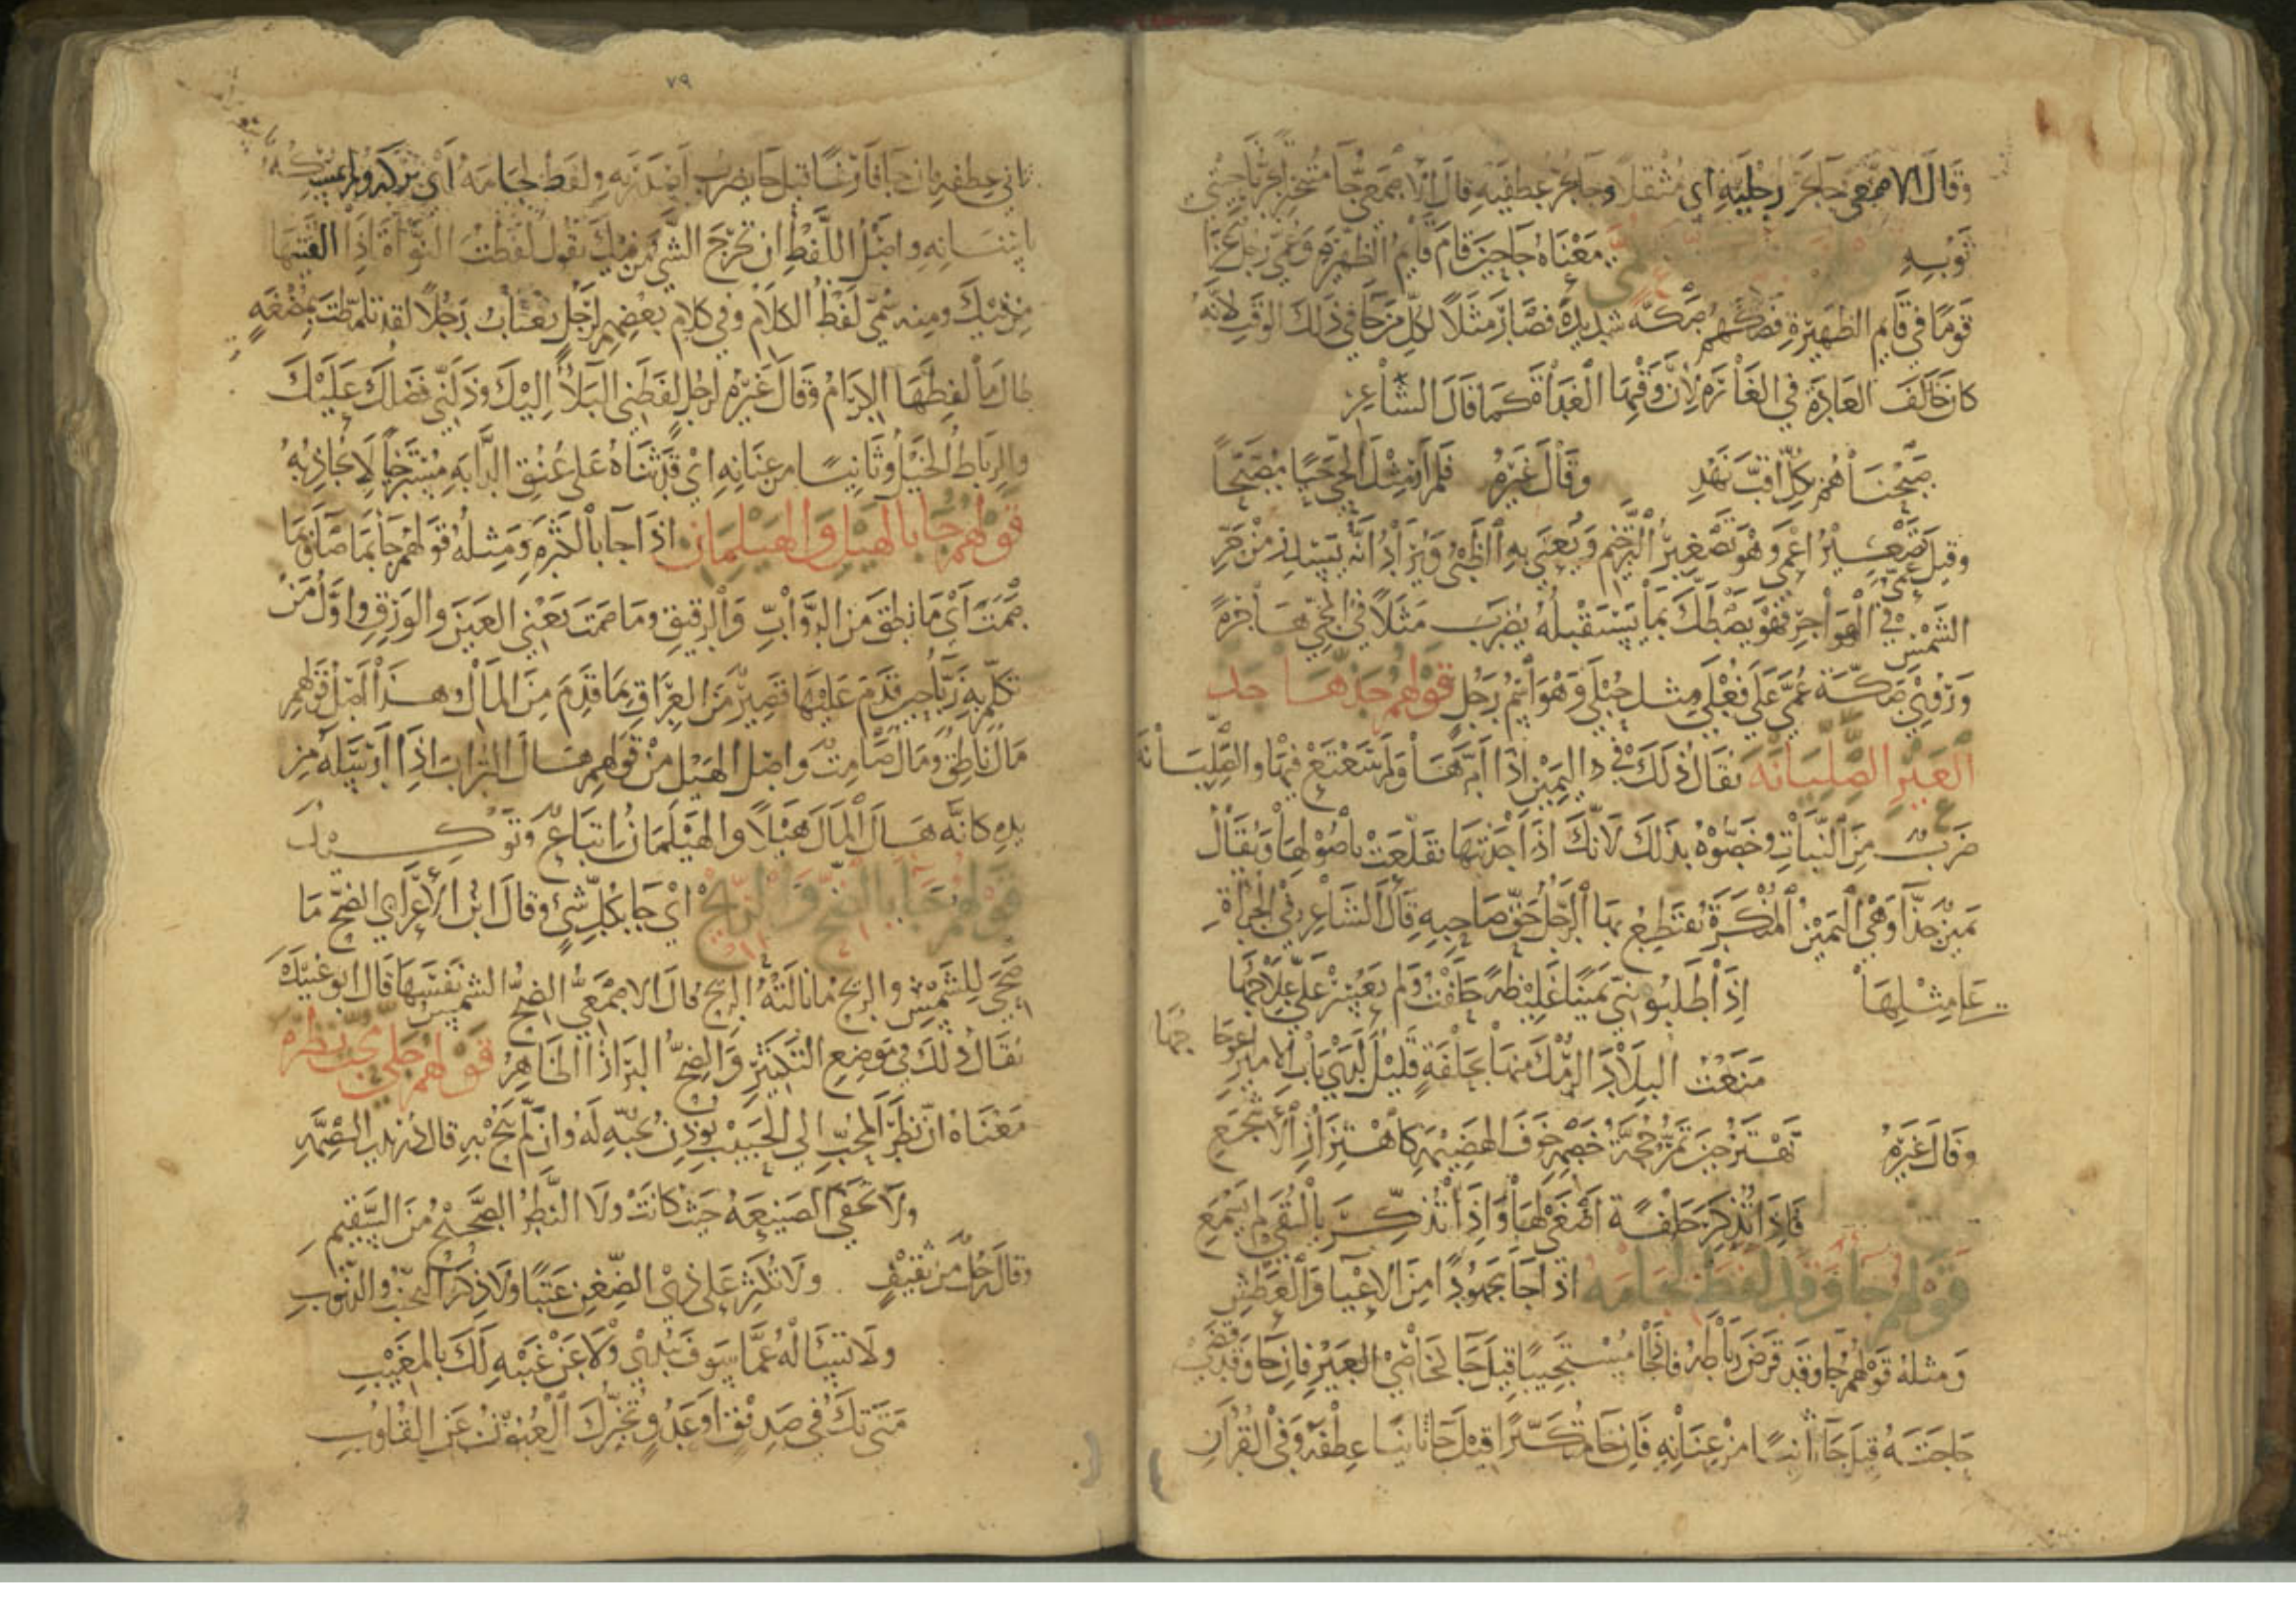 وقال الاصمعي جا يجر رجليه اي مثقلا وجا يجر عطفيه قال الاصمعي جا متبخترا يجر ناحيتي
ثوبه معناه جا حين قام قايم الظهيرة وعمي رجل غزا
قوما في قايم الظهيرة فصكهم صكة شديدة فصار مثلا لكل من جا في ذلك الوقت لانه
كان خالف العادة في الغارة لان وقتها الغداة كما قال الشاعر
صبحناهم بكل اقب نهد وقال غيره فلم ار مثل الحي حيا مصبحا
وقيل عمي تصغير اعمى وهو تصغير الترخيم ويعنى به الظبي ويراد انه يسدر من حر
الشمس في الهواجر فهو يصطك بما يستقبله يضرب مثلا في المجي هاجرة
وروي صكة عمى على فعلى مثل حبلى وهو اسم رجل قولهم جذها جذ
العير الصليانه يقال ذلك في اليمين اذا امرها ولم يتتعتع فيها والصليانه
ضرب من النبات وخصوه بذلك لانك اذا جذبتها تقلعت باصولها ويقال
يمين حذا وهي اليمين المنكرة يقتطع بها الرجل حق صاحبه قال الشاعر في الجراة
على مثلها اذا طلبوا مني يمينا غليظة حلفت ولم يعسر علي علاجها
منعت البلاد الرمك منها بحلفة قليل لدى باب الامير
وقال غيره تهتز حين تمر حجة خصمه خوف الهضيمة كاهتزاز الاشجع
فاذا تذكر حلفة اصغى لها واذا تذكر بالتقى لم يسمع
قولهم جا وقد لفظ لجامه اذا جا مجهودا من الاعيا والعطش
ومثله قولهم جا وقد قرض رباطه فان جا مستحييا قيل جا كخاصي العير فان جا وقد قضى
حاجته قيل جا ثانيا من عنانه فان جا متكبرا قيل جا ثانيا عطفه وفي القران
٧٩
ثاني عطفه فان جا فارغا قيل جا يضرب اصدريه ولفظ لجامه اي تركه ولم يمسكه
باسنانه واصل اللفظ ان تخرج الشي من فيك تقول لفظت النواة اذا القيتها
من فيك ومنه سمي لفظ الكلام وفي كلام بعضهم لرجل يغتاب رجلا لقد تلمظت بمضغة
طال ما لفظها الكرام وقال غيره لرجل لفظني البلا اليك ودلني فضلك عليك
والرباط الخيل وثانيا من عنانه اي قد ثناه على عنق الدابة مسترخيا لا يجاذبه
قولهم جا بالهيل والهيلمان اذا جا بالكثرة ومثله قولهم جا بما صاى وما
صمت اي ما نطق من الدواب والرقيق وما صمت يعني العين والورق واول من
تكلم به زبا حين قدم عليها قصير من العراق بما قدم من المال وهذا اصل قولهم
مال ناطق ومال صامت واصل الهيل من قولهم هال التراب اذا ارسله من
يده كانه هال المال هيلا والهيلمان اتباع وتوكيد
قولهم جا بالضح والريح اي جا بكل شي وقال ابن الاعرابي الضح ما
ضحي للشمس والريح ما نالته الريح قال الاصمعي الضح الشمس نفسها قال ابو عبيدة
يقال ذلك في موضع التكثير والضح البراز الظاهر قولهم جلى محب نظره
معناه ان نظر المحب الى الحبيب يوذن بحبه له وان لم يبح به قال دريد بن الصمة
ولا تخفى الصنيعة حيث كانت ولا النظر الصحيح من السقيم
وقال رجل من ثقيف ولا تكثر على ذي الضغن عتبا ولا ذكر التجرم للذنوب
ولا تساله عما سوف يبدي ولا عن غيبه لك بالمغيب
متى تك في صديق او عدو تخبرك العيون عن القلوب